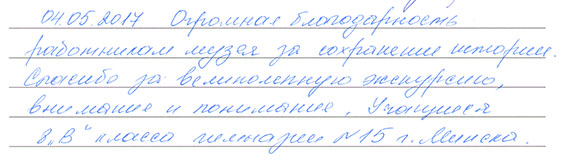 04.05.2017 Огромная благодарность
работникам музея за сохранение истории.
Спасибо за великолепную экскурсию,
внимание и понимание. Учащиеся
8 „В" класса гимназии №15 г. Минска.